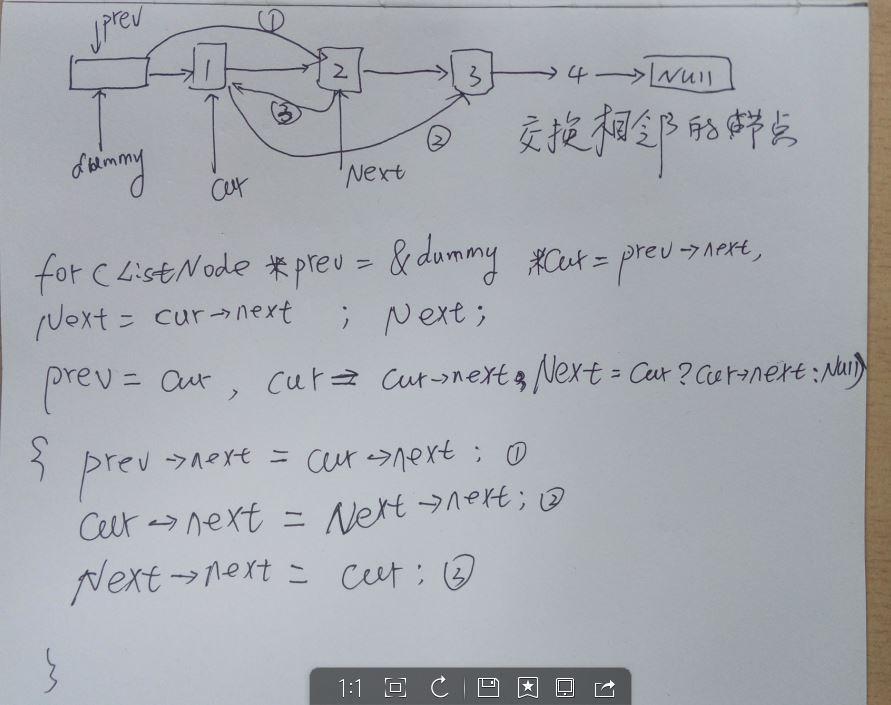 prev
①
1 2 3 4 Null
③
②
交换相邻的节点
dummy
cur
Next
for (ListNode *prev = &dummy *cur = prev→next,
Next = cur→next ; Next;
prev = cur , cur = cur→next, Next = cur ? cur→next : Null)
{ prev→next = cur→next ; ①
cur→next = Next→next ; ②
Next→next = cur ; ③
}
1:1